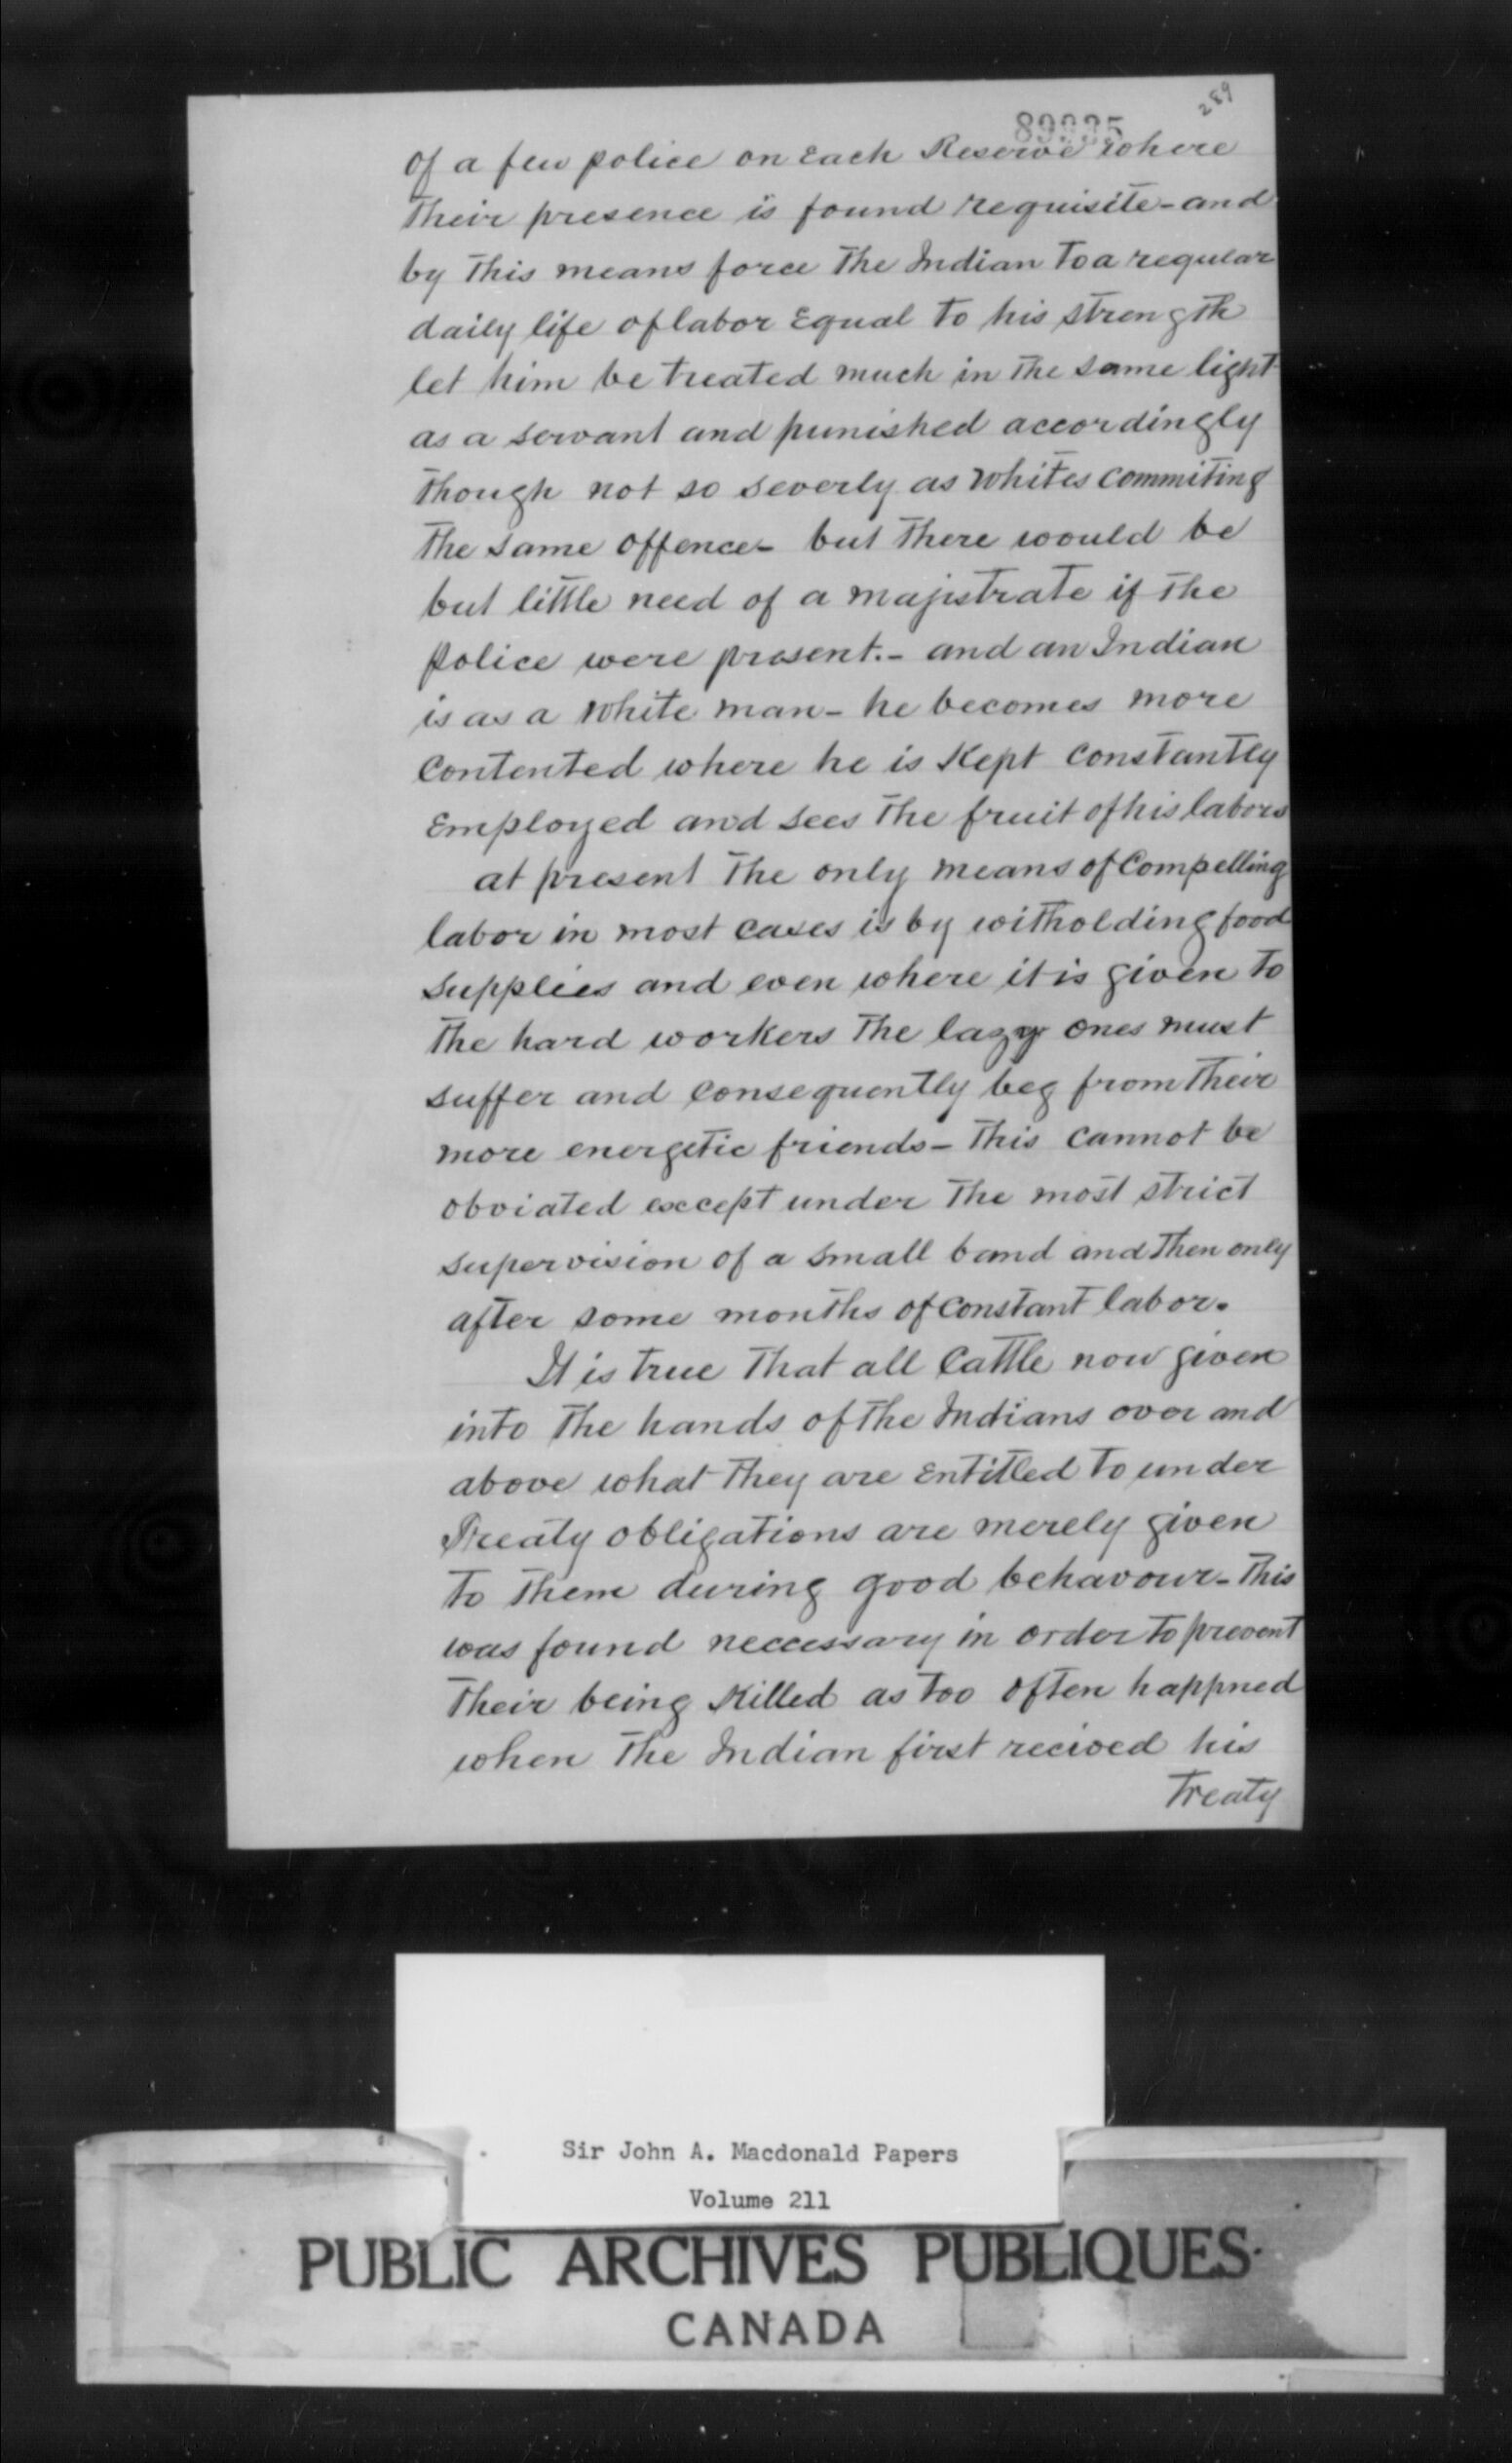 289
89935
of a few police on Each Reserve where
Their presence is found requisite - and
by This means force The Indian To a regular
daily life of labor Equal To his strength
let him be treated much in The same light
as a servant and punished accordingly
Though not so severly as Whites commiting
The same offence - but There would be
but little need of a majistrate if The
police were present. - and an Indian
is as a White man - he becomes more
Contented where he is Kept Constantly
Employed and sees The fruit of his labors
at present The only means of Compelling
labor in most cases is by witholding food
supplies and even where it is given To
The hard workers The lazy ones must
suffer and Consequently beg from Their
more energetic friends - This Cannot be
obviated except under The most strict
supervision of a small band and Then only
after some months of Constant labor.
It is True That all Cattle now given
into The hands of The Indians over and
above what They are Entitled To under
Treaty obligations are merely given
To Them during good behavour - This
was found neccessary in order To prevent
Their being Killed as Too often happned
when The Indian first recived his
Treaty
Sir John A. Macdonald Papers
Volume 211
PUBLIC ARCHIVES PUBLIQUES
CANADA